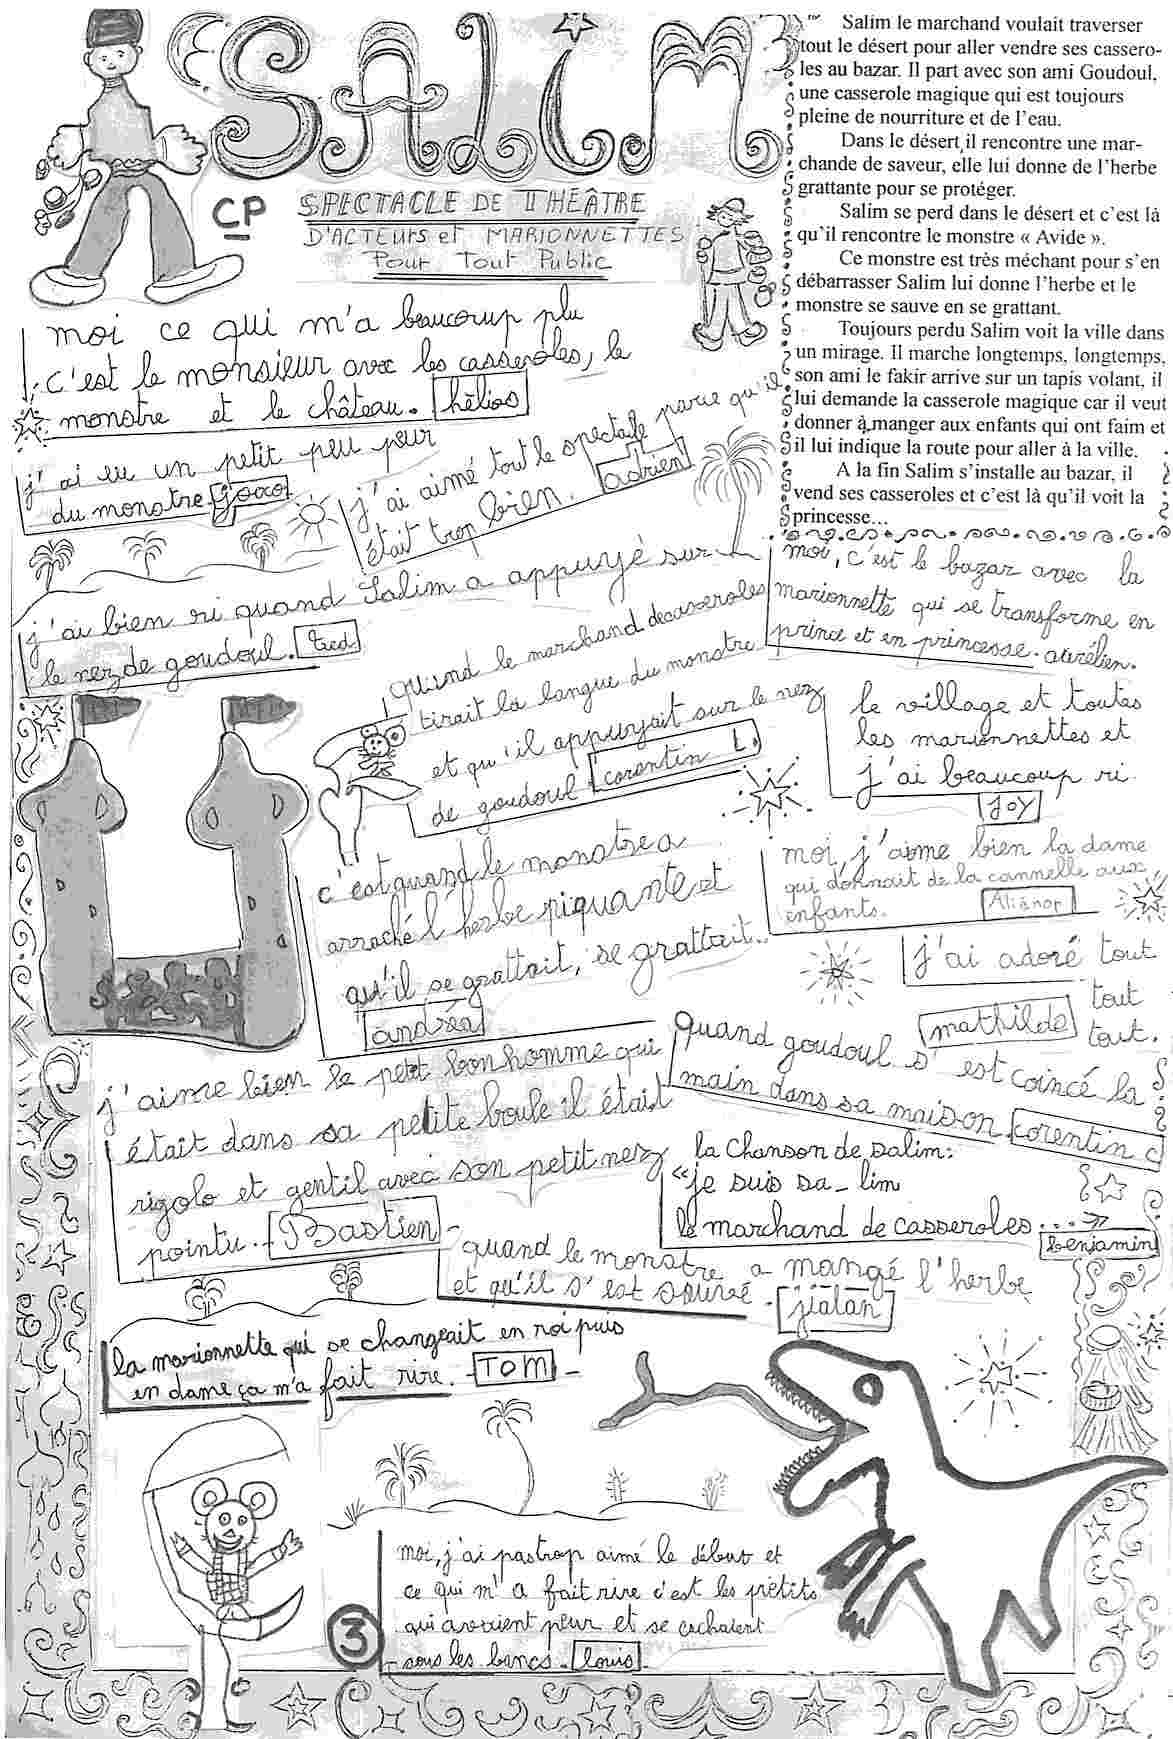 SALIM
CP
SPECTACLE DE THÉÂTRE
D'ACTEURS et MARIONNETTES
Pour Tout Public
Salim le marchand voulait traverser
tout le désert pour aller vendre ses cassero-
les au bazar. Il part avec son ami Goudoul,
une casserole magique qui est toujours
pleine de nourriture et de l'eau.
Dans le désert, il rencontre une mar-
chande de saveur, elle lui donne de l'herbe
grattante pour se protéger.
Salim se perd dans le désert et c'est là
qu'il rencontre le monstre « Avide ».
Ce monstre est très méchant pour s'en
débarrasser Salim lui donne l'herbe et le
monstre se sauve en se grattant.
Toujours perdu Salim voit la ville dans
un mirage. Il marche longtemps, longtemps,
son ami le fakir arrive sur un tapis volant, il
lui demande la casserole magique car il veut
donner à manger aux enfants qui ont faim et
il lui indique la route pour aller à la ville.
A la fin Salim s'installe au bazar, il
vend ses casseroles et c'est là qu'il voit la
princesse...
moi ce qui m'a beaucoup plu
c'est le monsieur avec les casseroles, le
monstre et le château. hélios
j'ai eu un petit peu peur
du monstre.
j'ai aimé tout le spectacle parce qu'il
était trop bien. adrien
j'ai bien ri quand Salim a appuyé sur
le nez de goudoul. Ted.
moi, c'est le bazar avec la
marionnette qui se transforme en
prince et en princesse. aurélien.
Quand le marchand de casseroles
tirait la langue du monstre
et qu'il appuyait sur le nez
de goudoul. corentin L.
le village et toutes
les marionnettes et
j'ai beaucoup ri.
JOY
c'est quand le monstre a
arraché l'herbe piquante et
qu'il se grattait, se grattait..
andréa
moi, j'aime bien la dame
qui donnait de la cannelle aux
enfants. Aliénor
j'ai adoré tout
tout
mathilde tout.
j'aime bien le petit bonhomme qui
était dans sa petite boule il était
rigolo et gentil avec son petit nez
pointu. Bastien
quand goudoul s'est coincé la
main dans sa maison. corentin c
la chanson de salim:
"je suis sa-lim
le marchand de casseroles...
benjamin
quand le monstre a mangé l'herbe
et qu'il s'est sauvé. jialan
la marionnette qui se changeait en roi puis
en dame ça m'a fait rire. TOM
moi, j'ai pas trop aimé le début et
ce qui m'a fait rire c'est les petits
qui avaient peur et se cachaient
sous les bancs. louis
3